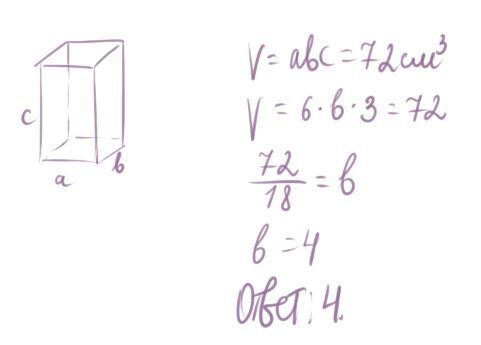 c
a
b
V = abc = 72 см³
V = 6 · b · 3 = 72
72/18 = b
b = 4
Ответ: 4.